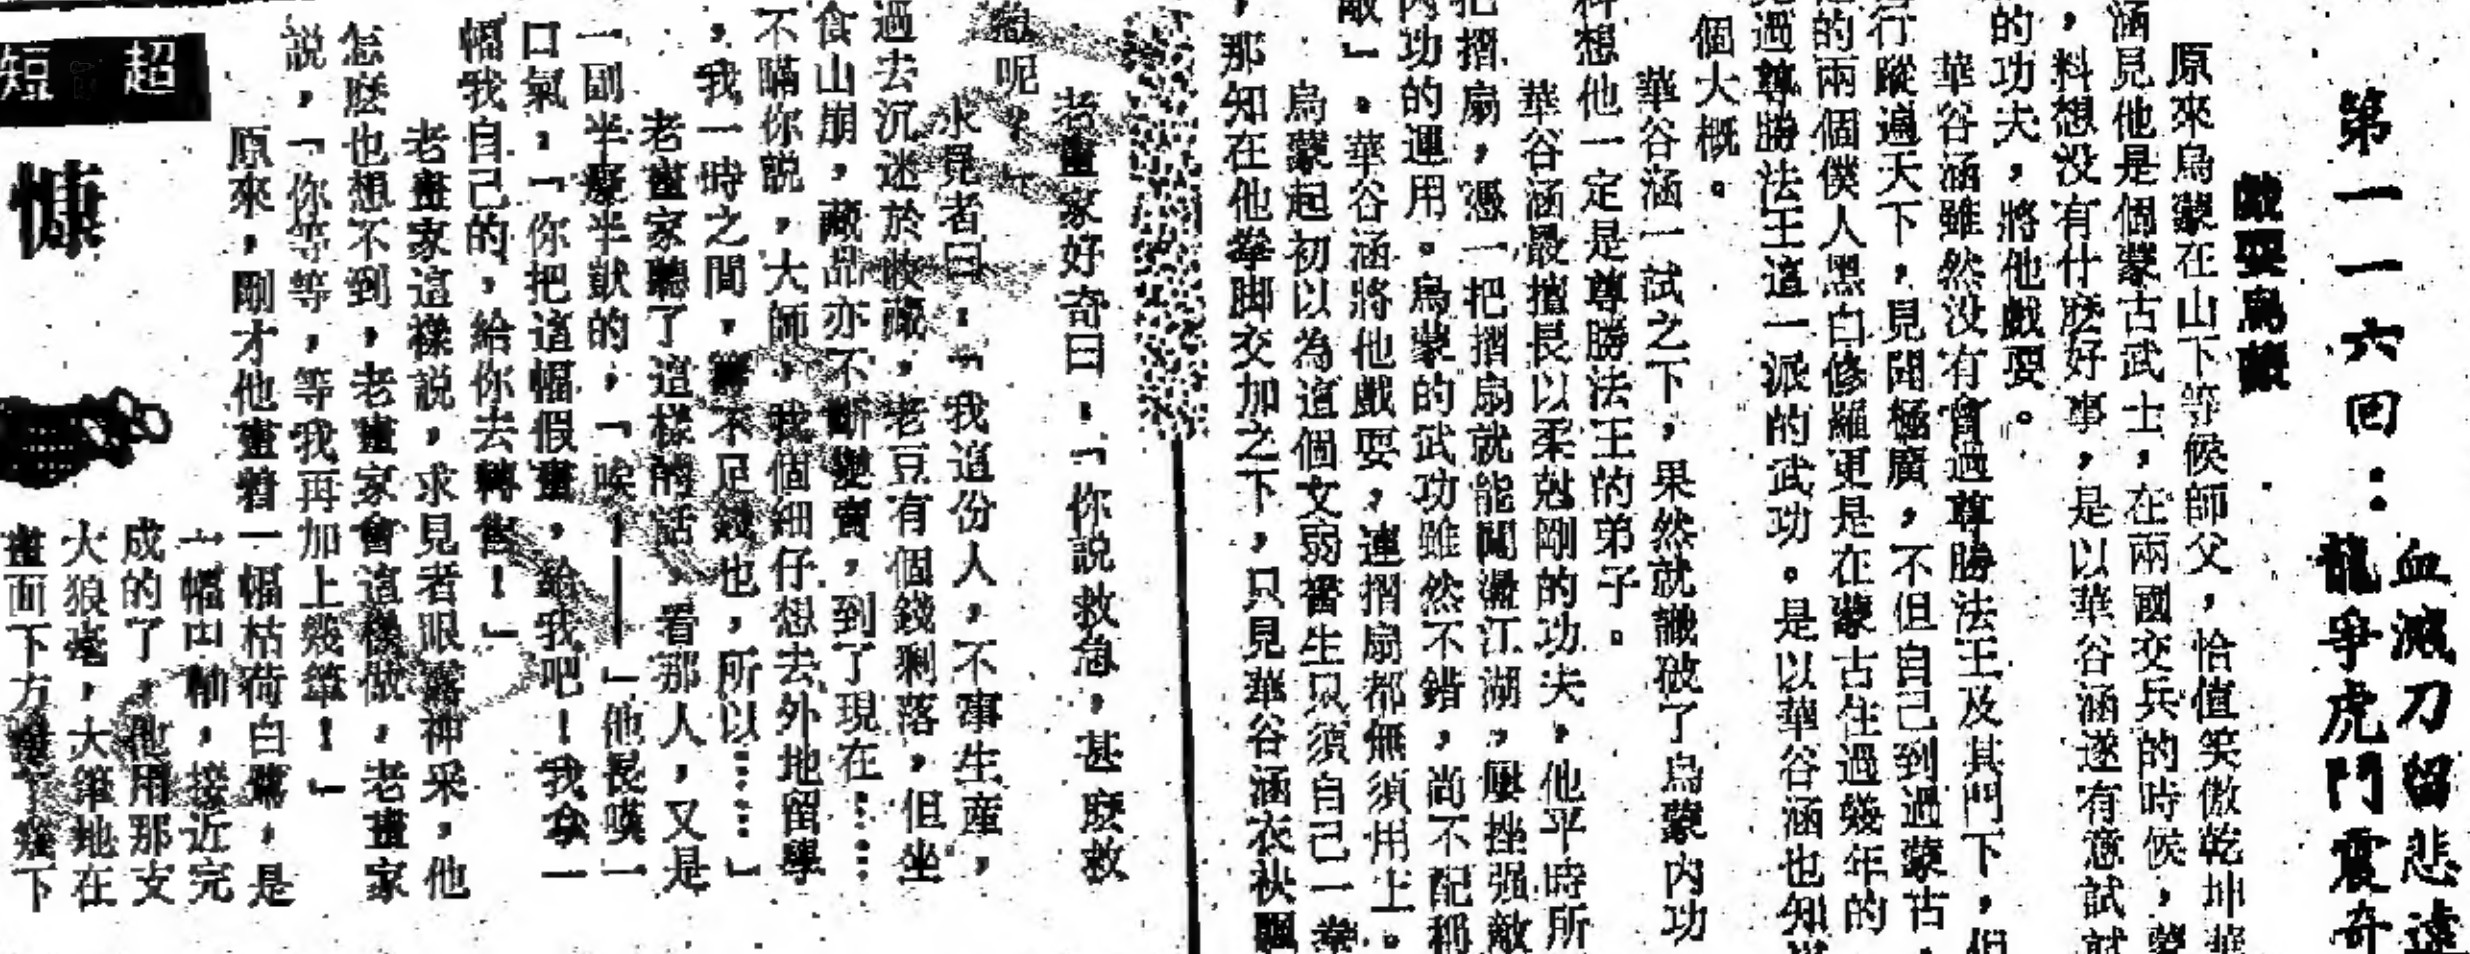 第一一六回：
血濺刀留悲遠
龍爭虎鬥震奇
戲耍烏蒙
原來烏蒙在山下等候師父，恰值笑傲乾坤華
涵見他是個蒙古武士，在兩國交兵的時候，蒙
，料想没有什麽好事，是以華谷涵遂有意試試
的功夫，將他戲耍。
華谷涵雖然没有會過尊勝法王及其門下，但
行蹤遍天下，見聞極廣，不但自己到過蒙古，
的兩個僕人黑白修羅更是在蒙古住過幾年的
過尊勝法王這一派的武功。是以華谷涵也知道
個大概。
華谷涵一試之下，果然就識破了烏蒙内功
料想他一定是尊勝法王的弟子。
華谷涵最擅長以柔剋剛的功夫，他平時所
把摺扇，憑一把摺扇就能闖盪江湖，壓挫强敵
内功的運用。烏蒙的武功雖然不錯，尚不配稱
敵」。華谷涵將他戲耍，連摺扇都無須用上。
烏蒙起初以為這個文弱書生只須自己一拳
，那知在他拳脚交加之下，只見華谷涵衣袂飄
老畫家好奇曰：「你説救急，甚麽救
急呢？」
求見者曰：「我這份人，不事生産，
過去沉迷於收藏，老豆有個錢剩落，但坐
食山崩，藏品亦不斷變賣，到了現在……
不瞞你説，大師，我個細仔想去外地留學
，我一時之間，籌不足錢也，所以……」
老畫家聽了這樣的話，看那人，又是
一副半癡半獃的，「唉！——」他長嘆一
口氣，「你把這幅假畫，給我吧！我拿一
幅我自己的，給你去轉售！」
老畫家這樣説，求見者眼露神采，他
怎麽也想不到，老畫家會這樣做，老畫家
説，「你等等，等我再加上幾筆！」
原來，剛才他畫着一幅枯荷白鷺，是
一幅中軸，接近完
成的了，他用那支
大狼毫，大筆地在
畫面下方
幾下
超
短
慷